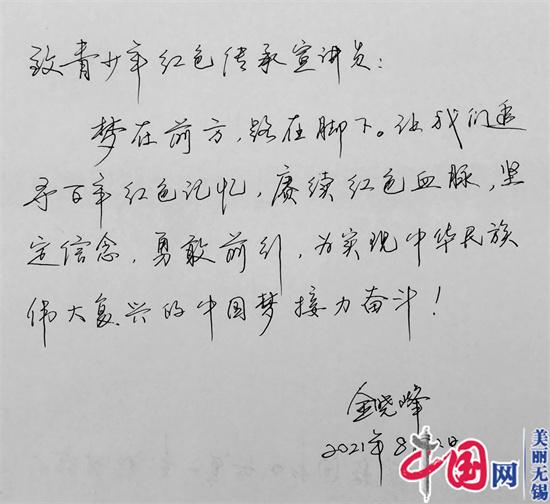 致青少年红色传承宣讲员：
梦在前方，路在脚下。让我们追
寻百年红色记忆，赓续红色血脉，坚
定信念，勇敢前行，为实现中华民族
伟大复兴的中国梦接力奋斗！
金晓峰
2021年8.
中国网
美丽无锡